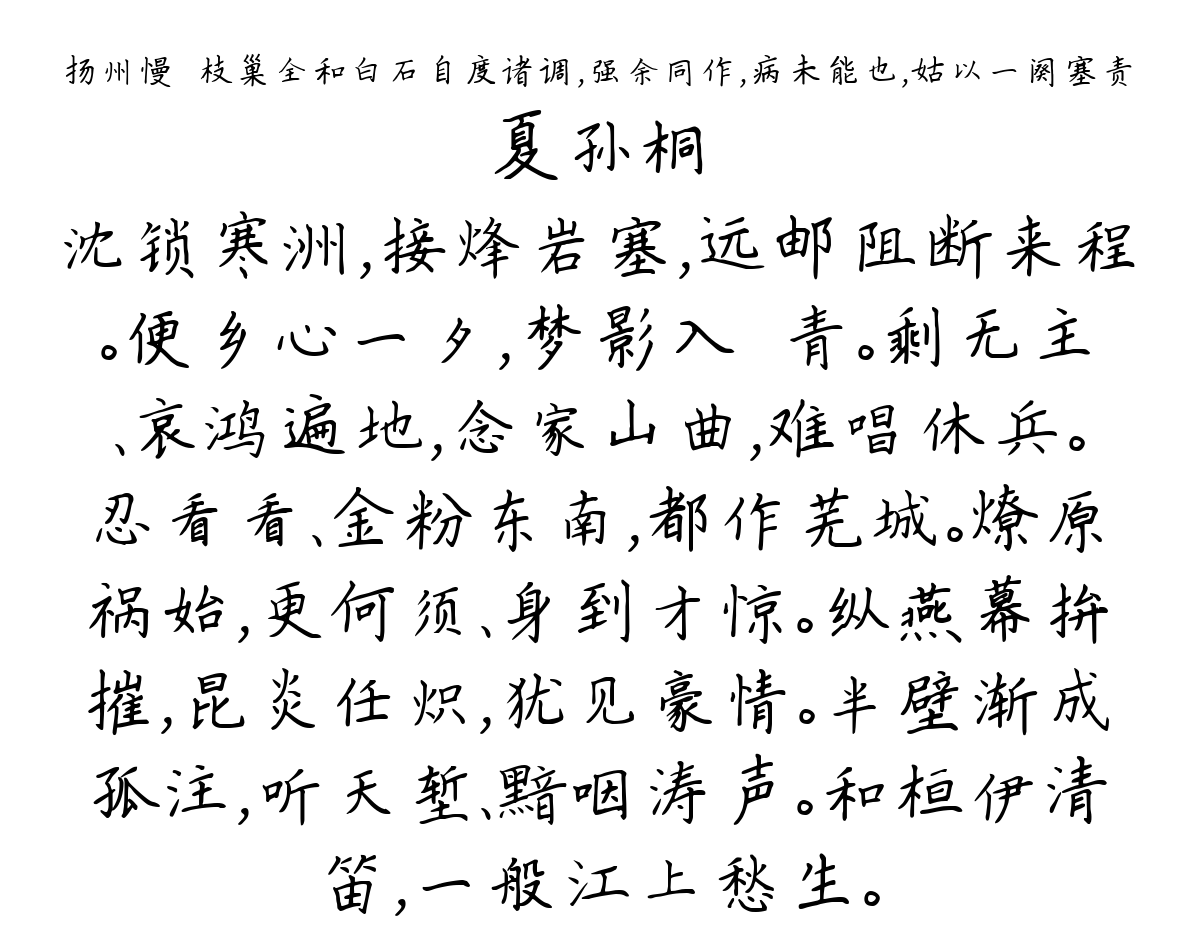 扬州慢 枝巢全和白石自度诸调,强余同作,病未能也,姑以一阕塞责
夏孙桐
沈锁寒洲,接烽岩塞,远邮阻断来程
。便乡心一夕,梦影入 青。剩无主
、哀鸿遍地,念家山曲,难唱休兵。
忍看看、金粉东南,都作芜城。燎原
祸始,更何须、身到才惊。纵燕幕拚
摧,昆炎任炽,犹见豪情。半壁渐成
孤注,听天堑、黯咽涛声。和桓伊清
笛,一般江上愁生。